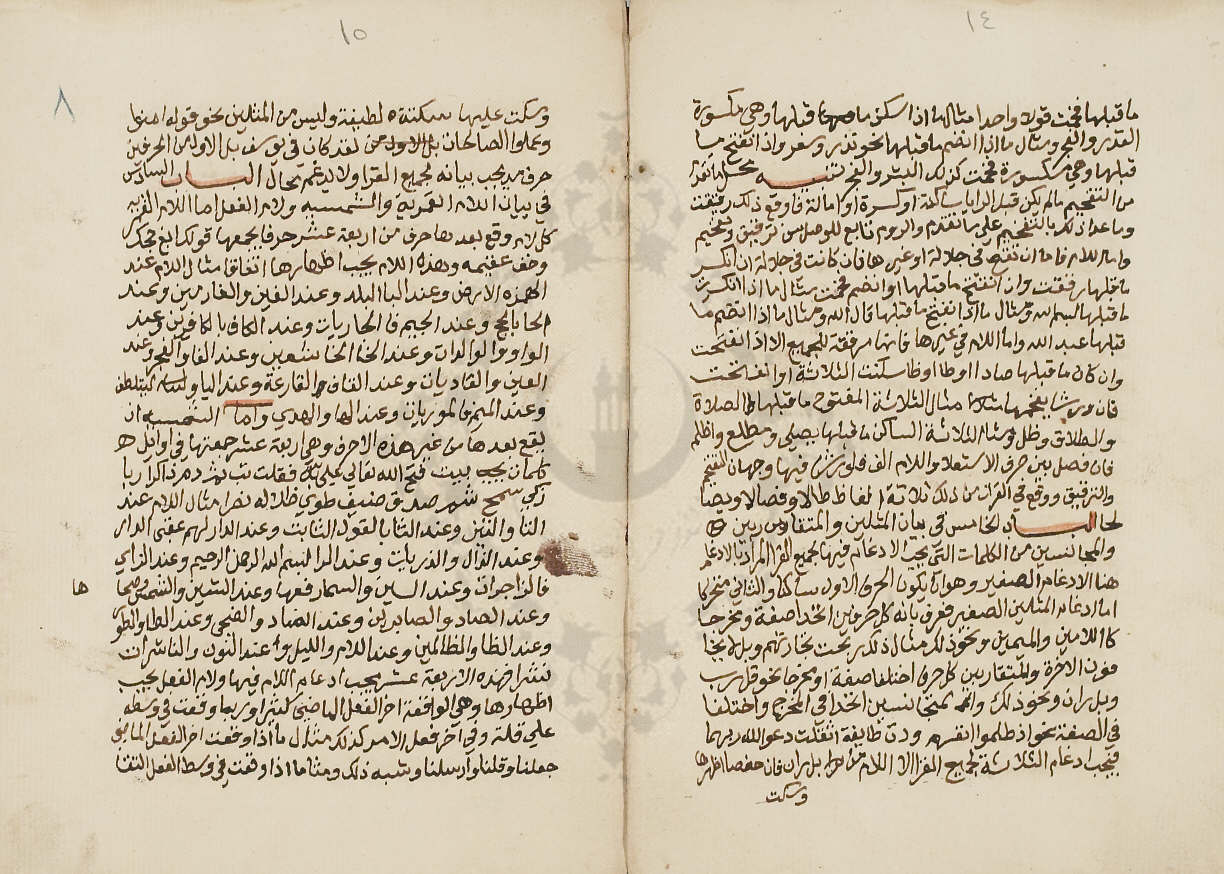 ١٤
ما قبلها فخمت قولا واحدا مثالها اذا سكن ما قبلها وهي مكسورة
القدر والفجر ومثال ما اذا انضم ما قبلها نحو نذر وسعر واذا انفتح ما
قبلها وهي مكسورة فخمت كذلك البشر والقمر تنبيه محل ما تقدم
من التفخيم مالم يكن قبل الرا يا ساكنة او كسرة او امالة فا وقع ذلك رققت
وما عدا ذلك بالتفخيم علي ما تقدم والروم تابع للوصل من ترقيق وتفخيم
واما اللام فاما ان تقع في جلالة او غيرها فان كانت في جلالة ان انكسر
ما قبلها رققت وان انفتح ما قبلها او انضم فخمت مثال ما اذا انكسر
ما قبلها بسم الله ومثال ما اذا انفتح ما قبلها قال الله ومثال ما اذا انضم ما
قبلها عبد الله واما اللام في غيرها فانها مرققة للجميع الا اذا انفتحت
وان كان ما قبلها صادا او طا او ظا سكنت الثلاثة او انفتحت
فان ورشا يفخمها مثال الثلاثة المفتوح ما قبلها الصلاة
والطلاق وظل ومثال الثلاثة الساكن ما قبلها يصلي ومطلع واظلم
فان فصل بين حرف الاستعلا واللام الف فلورش فيها وجهان التفخيم
والترقيق ووقع في القران من ذلك ثلاثة الفاظ طال وفصالا ويصا
لحا الباب الخامس في بيان المثلين والمتقاربين
والمجانسين من الكلمات التي يجب الادغام فيها لجميع القرا المراد بالادغام
هنا الادغام الصغير وهو ان يكون الحرف الاول ساكنا والثاني متحركا
اما ادغام المثلين الصغير فعرف بانه كل حرفين اتحدا صفة ومخرجا
كا اللامين والميمين ونحو ذلك مثال ذلك ربحت تجارتهم وبل لا يخا
فون الاخرة والمتقاربين كل حرف اختلفا صفة او مخرجا نحو قل رب
وبل ران ونحو ذلك والمتجانسين اتحدا في المخرج واختلفا
في الصفة نحو اذ ظلموا انفسهم ودت طايفة اثقلت دعوا الله ربهما
فيجب ادغام الثلاثة لجميع القرا الا اللام من بل ران فان حفصا اظهرها
وسكت
١٥
٨
وسكت عليها سكتة لطيفة وليس من المثلين نحو قوله امنوا
وعملوا الصالحات لقد كان في يوسف بل الاول من الحرفين
حرف مد يجب بيانه لجميع القرا ولا يدغم بحال الباب السادس
في بيان اللام القمرية والشمسية ولام الفعل اما اللام القمرية
كل لام وقع بعدها حرف من اربعة عشر حرفا يجمعها قولك ابغ حجك
وخف عقيمه وهذه اللام يجب اظهارها اتفاقا مثال اللام عند
الهمزة الارض وعند البا البلد وعند الغين والغارمين وعند
الحا بالحج وعند الجيم فالجاريات وعند الكاف بالكافرين وعند
الواو والوالدات وعند الخا الخاشعين وعند الفا والفجر وعند
العين والعاديات وعند القاف القارعة وعند اليا
وعند الميم فالموريات وعند الها والهدي واما الشمسيه ان
يقع بعدها من غير هذه الاحرف وهي اربعة عشر جمعتها في اوايل
كلمات بيت فتح الله تعالي علي به فقلت تب ثم در ذاكرا ربا
زكي سمح شم صدق ضيف طوي ظلا له نصرا مثال اللام عند
التا والتين وعند الثا بالقول الثابت وعند الدال لهم عقبي الدار
وعند الذال والذريات وعند الرا بسم الله الرحمن الرحيم وعند الزاي
فالزاجرات وعند السين والسما رفعها وعند الشين والشمس وضحا
ها
وعند الصاد والصابرين وعند الضاد والضحي وعند الطا والطور
وعند الظا والظالمين وعند اللام والليل وعند النون والناشرات
نشرا فهذه الاربعة عشر يجب ادغام اللام فيها ولام الفعل يجب
اظهارها وهي الواقعة اخر الفعل الماضي كثيرا وربما وقعت في وسطه
علي قلة وفي آخر فعل الامر كذلك مثال ما اذا وقعت اخر الفعل الماضي
جعلنا وقلنا وارسلنا وشبه ذلك ومثال ما اذا وقعت في وسط الفعل التقا